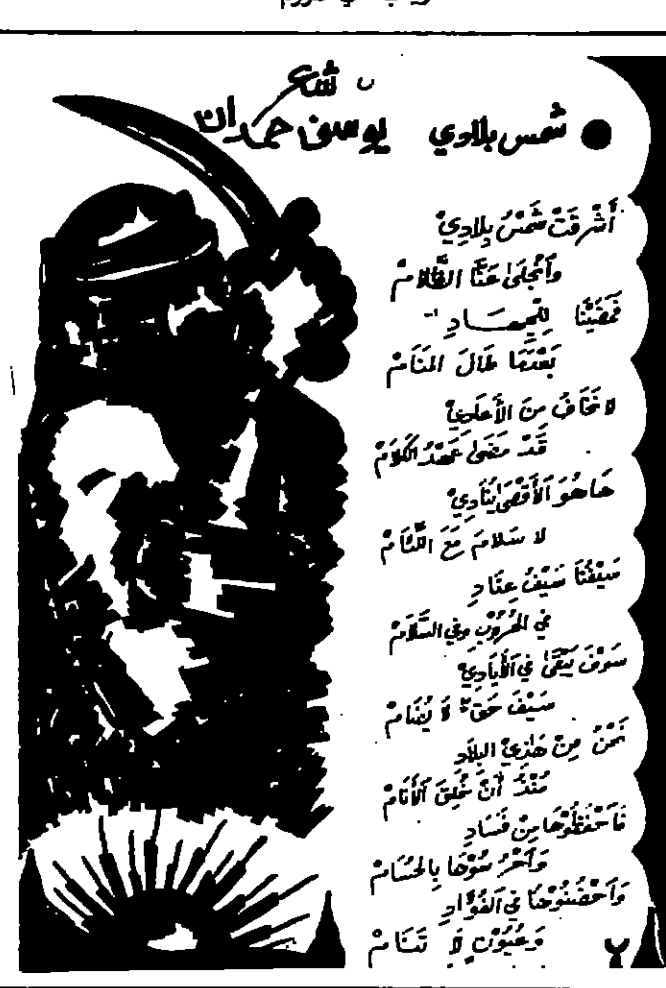 شعر
● شمس بلادي يوسف حمدان
أَشْرَقَتْ شَمْسُ بِلادِيْ
وَأَنْجَلَىٰ عَنَّا الظَّلامْ
فَمَضَيْنَا لِلْجِهَـادِ
بَعْدَمَا طَالَ المَنَامْ
لا نَخَافُ مِنَ الأَعَادِيْ
قَدْ مَضَىٰ عَهْدُ الكَلَامْ
هَا هُوَ اَلأَقْصَىٰ يُنَادِيْ
لا سَلامَ مَعَ اللِّئَامْ
سَيْفُنَا سَيْفُ عِنَادٍ
فِي الحُرُوْبِ وفي السَّلَامْ
سَوْفَ يَبْقَىٰ في اَلأَيَادِيْ
سَيْفَ حَقٍّ لَا يُضَامْ
نَحْنُ مِنْ هَذِيْ البِلَادِ
مُنْذُ أَنْ خُلِقَ اَلأَنَامْ
فَاَحْفَظُوْهَا مِنْ فَسَادٍ
وَاَحْرُسُوْهَا بِالحُسَامْ
وَاَحْضُنُوْهَا في اَلفُؤَادِ
وَعُيُوْنٍ لَا تَنَامْ
٢